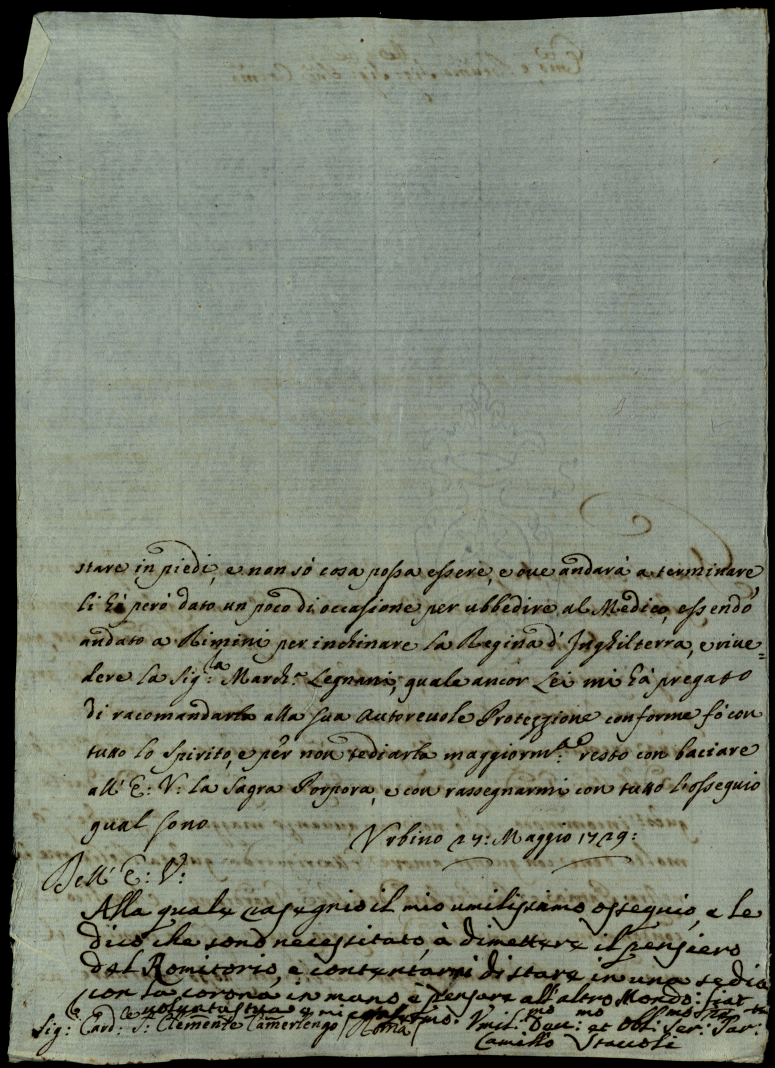 stare in piedi, e non sò cosa possa essere, e ove andarà a terminare,
li hà però dato un poco di occasione per ubbedire al Medico, essendo
andato à Rimini per inchinare la Regina d'Inghilterra, e rive=
dere la Sig:ra March:a Legnani, quale ancor Lei mi hà pregato
di racomandarla alla sua autorevole Protezzione conforme fò con
tutto lo spirito, e per non tediarla maggiorm:te resto con baciare
all' E: V: la Sagra Porpora, e con rassegnarmi con tutto l'ossequio
qual sono
Urbino 27: Maggio 1729:
Dell' E: V:
Alla quale rasegnio il mio umilissimo ossequio, e le
dico che sono necessitato, à dimettere il pensiero
del Romitorio, e contentarmi di stare in una sedia
con la corona in mano è pensare all'altro Mondo: fiat
voluntas tua e mi
Sig: Card: S: Clemente Camerlengo (Roma) Umil:mo Dev:mo et Obl:mo Ser:
Camillo Staccoli